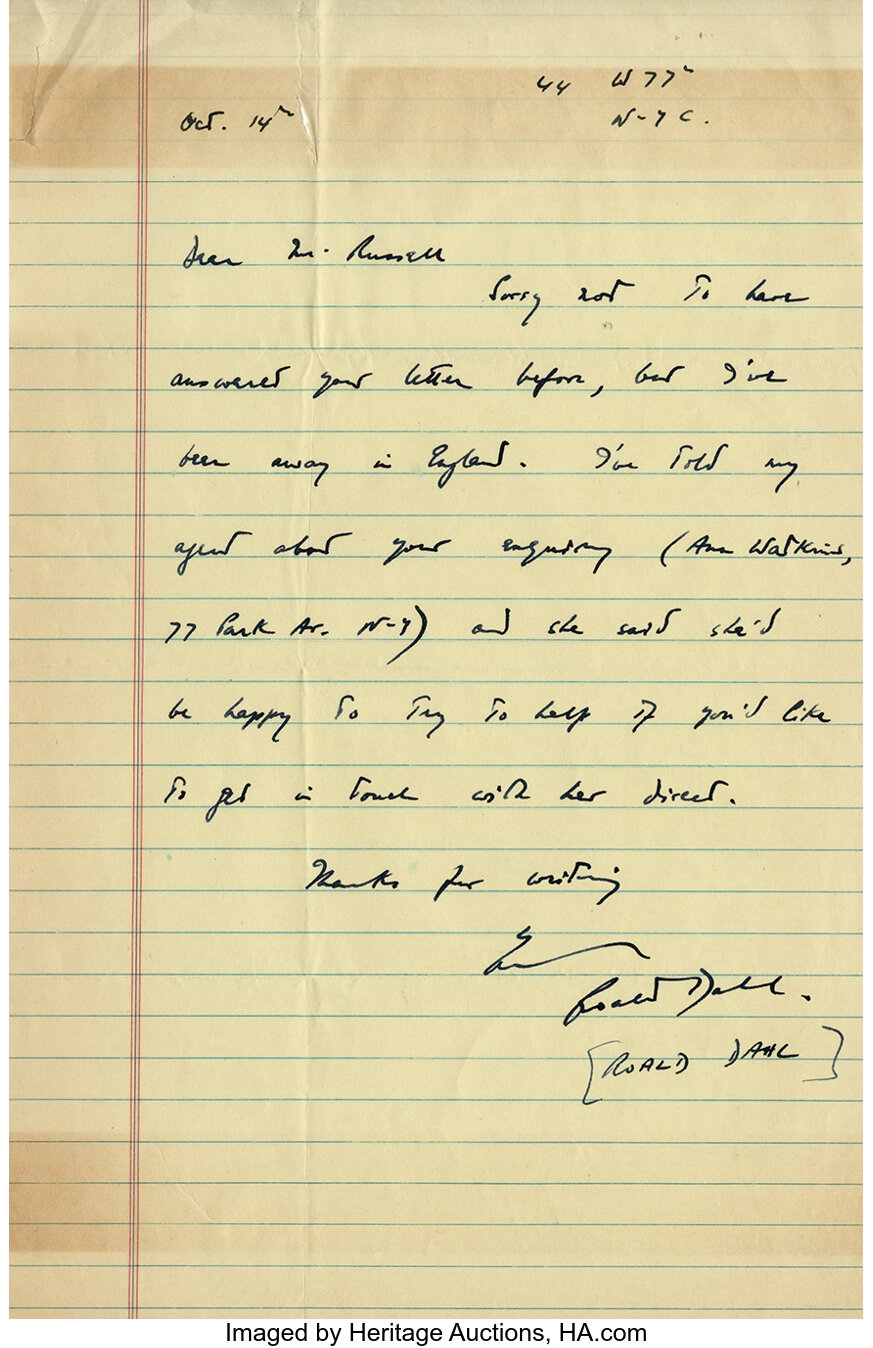 44 W 77th
Oct. 14th N-Y C.
Dear Mr. Russell
Sorry not to have
answered your letter before, but I've
been away in England. I've told my
agent about your enquiry (Ann Watkins,
77 Park Av. N-Y) and she said she'd
be happy to try to help if you'd like
to get in touch with her direct.
Thanks for writing
Yours
Roald Dahl.
[ROALD DAHL]
Imaged by Heritage Auctions, HA.com